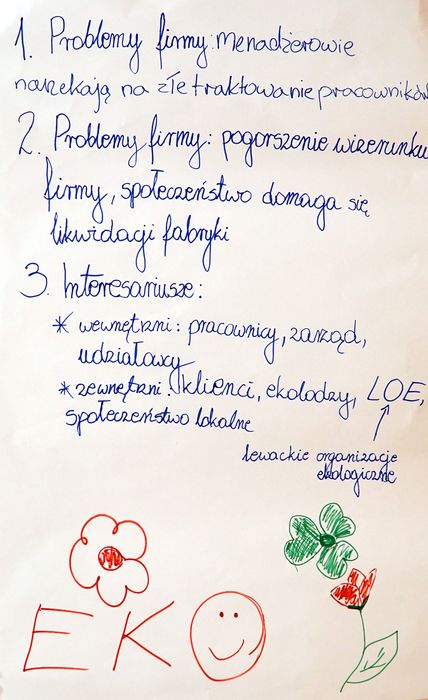 1. Problemy firmy: menadżerowie
narzekają na złe traktowanie pracowników
2. Problemy firmy: pogorszenie wizerunku
firmy, społeczeństwo domaga się
likwidacji fabryki
3. Interesariusze:
* wewnętrzni: pracownicy, zarząd,
udziałowcy
* zewnętrzni: klienci, ekolodzy, LOE,
społeczeństwo lokalne
lewackie organizacje
ekologiczne
EKO